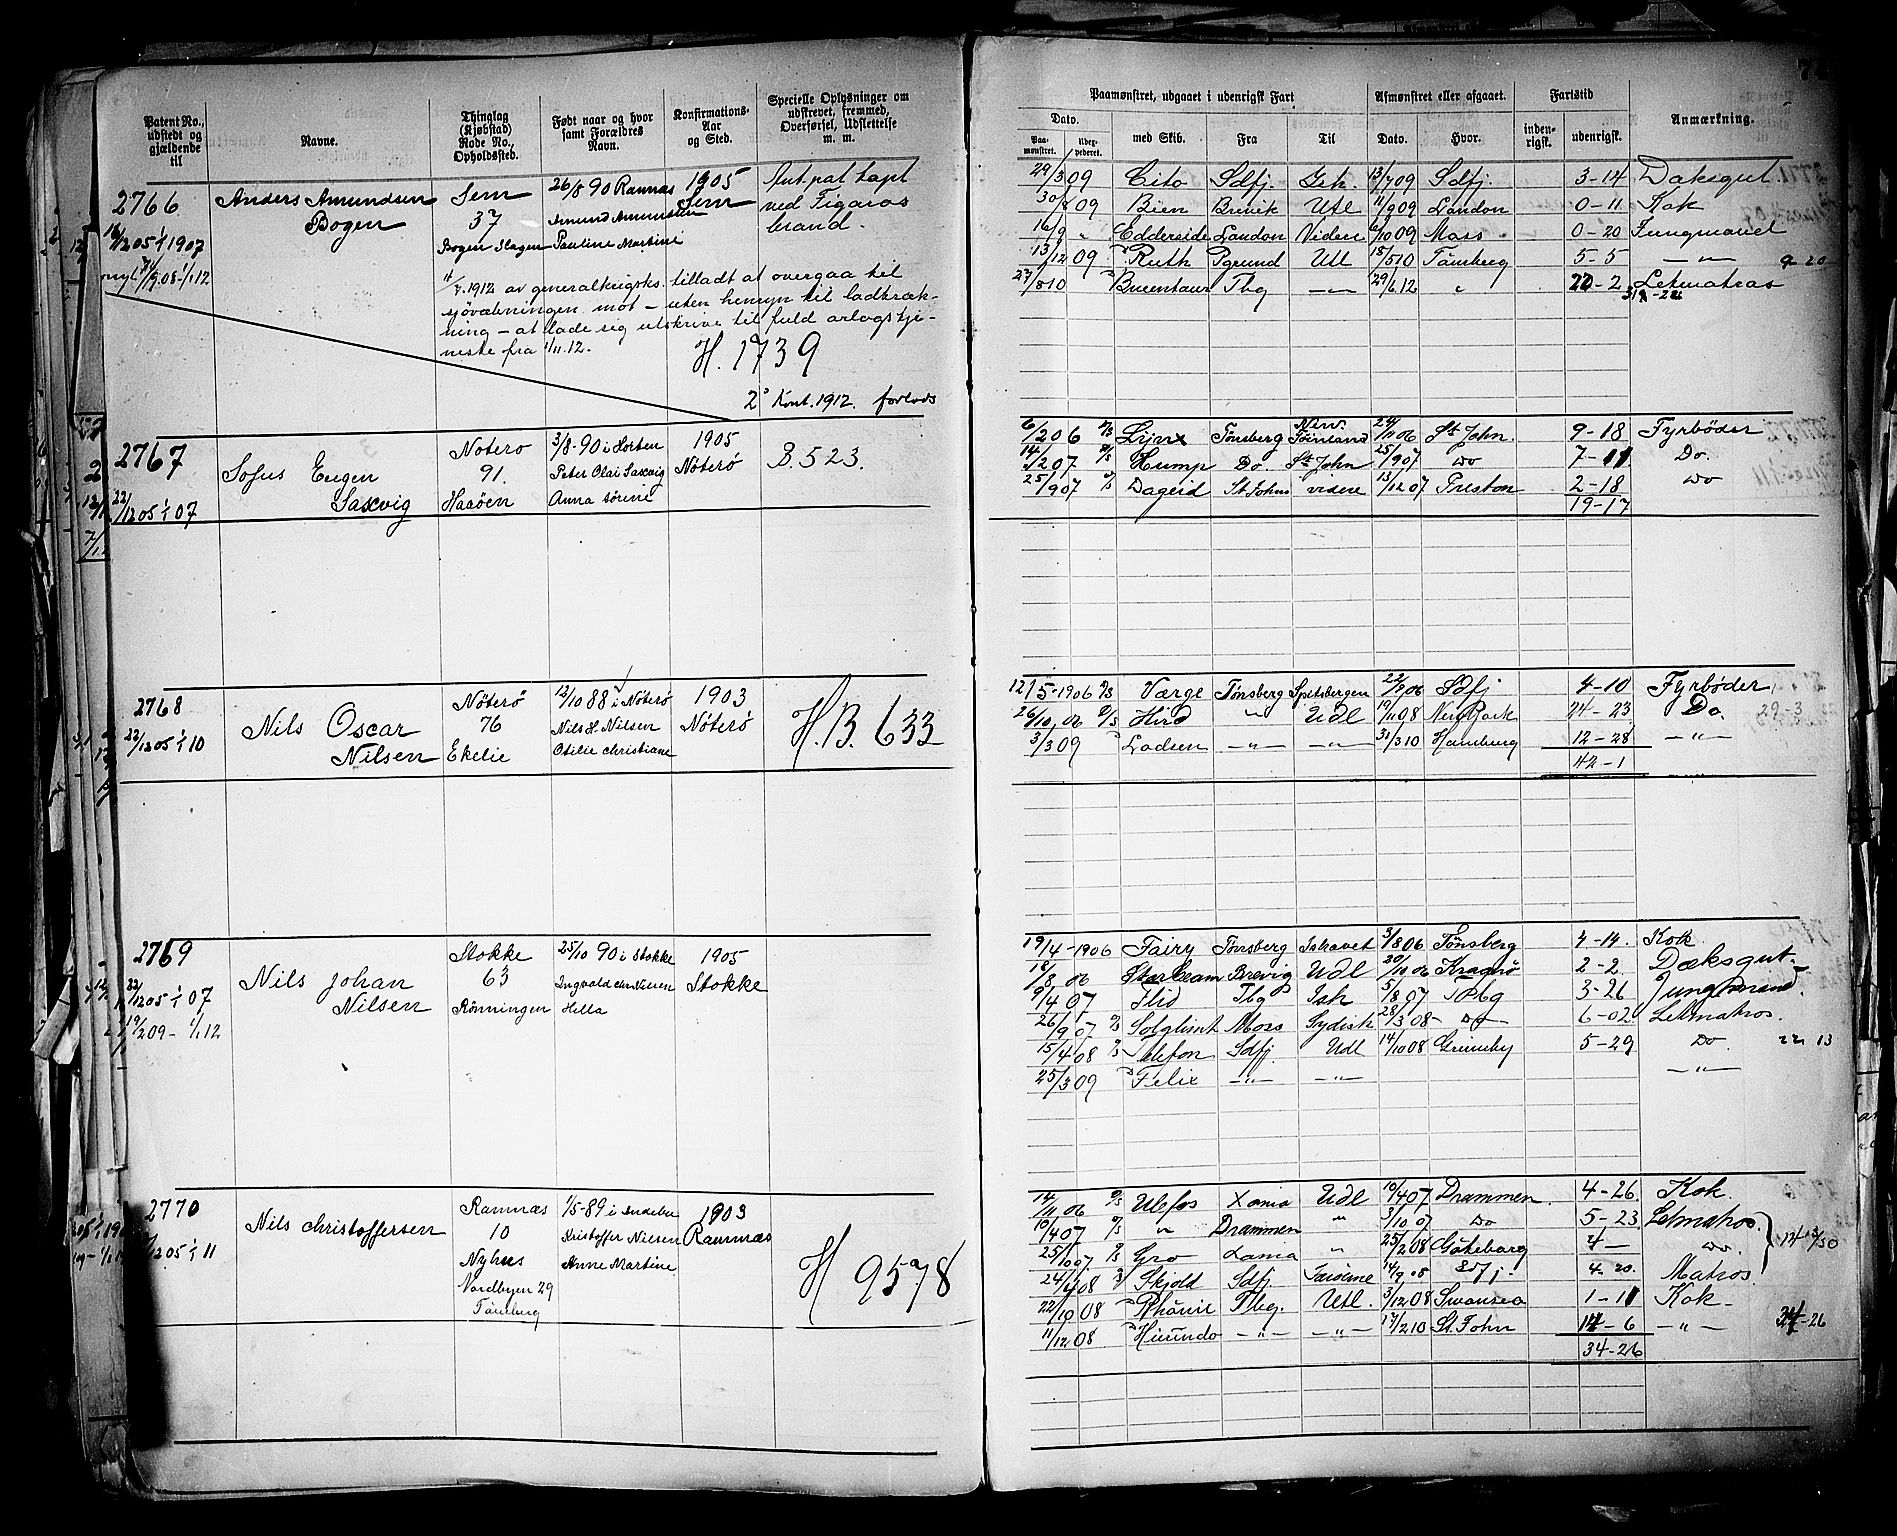 Patent No., udstedt og gjældende til
Navne.
Thinglag (Kjøbstad) Rode No., Opholdssted.
Født naar og hvor samt Forældres Navn.
Konfirmations-Aar og Sted.
Specielle Oplysninger om udstrevet, fremmed, Overførsel, Udslettelse m. m.
Paamønstret, udgaaet i udenrigsk Fart
Afmønstret eller afgaaet.
Fartstid
Anmærkning.
Dato.
Paamønstret.
med Skib.
Fra
Til
Dato.
Hvor.
indenrigsk.
udenrigsk.
2766
Anders Amundsen
Bogen
Sem
37
Bogen Slagen
26/8 90 Ramnæs
Amund Amundsen
Pauline Martine
1905
Sem
Ant. pat. tapt
ved Figaros
brand.
12 05 1/1 1907
9.08-1/1.12
1912 av generalkrigsks. tilladt at overgaa til
sjøvæbningen mot - uten hensyn til lodtræk-
ning - at lade sig utskrive til fuld orlogstje-
neste fra 1/11.12.
H. 1739
2' Kont. 1912. forlods
29/3 09 Cito Sdfj. Ish. 13/7 09 Sdfj. 3-14 Dæksgut
30/8 09 Bien Brevik Utl 11/9 09 London 0-11 Kok
16/9 " Edderside London Videre 6/10 09 Moss 0-20 Jungmand
13/12 09 Ruth Pgrund Utl 18/5 10 Tønsberg 5-5 -"-
27/8 10 Bucentaur Tbg -"- 29/6 12 " 22-2 Letmatros
2767
22/12 05 1/1 07
Sofus Eugen
Saxvig
Nøterø
91.
Haaøen
3/8-90 i Horten
Peter Olai Saxvig
Anna Sørine
1905
Nøterø
B. 523.
6/2 06 D/S Lynx Tønsberg 24/10 06 St John. 9-18 Fyrbøder
14/2 07 D/S Kump Do. St John 25/9 07 Do 7-11 Do.
25/9 07 D/S Dageid St Johns videre 13/12 07 Preston 2-18 Do
19-17
2768
22/12 05 1/1 10
Nils Oscar
Nilsen
Nøterø
76
Ekelie
12/10 88 i Nøterø
Nils H. Nilsen
Otilie Christiane
1903
Nøterø
H.B. 633
12/5-1906 D/S Værge Tønsberg Spitsbergen 22/9 06 Sdfj 4-10 Fyrbøder
26/10 06 D/S Hird " Udl 19/11 08 New York 24-23 Do. 29-3
3/3 09 Ladsen -"- -"- 31/3 10 Hamburg 12-28 -"-
42-1
2769
22/12 05 1/1 07
19/2 09 - 1/1 12
Nils Johan
Nilsen
Stokke
63
Rønningen
25/10 90 i Stokke
Ingvald Chr. Nilsen
Hella
1905
Stokke
19/4-1906 Fairy Tønsberg Ishavet 3/8 06 Tønsberg 4-14. Kok
18/8 06 Brevig Udl 20/10 06 Kragerø 2-2. Dæksgut
9/4 07 Flid Tbg Ish 5/8 07 Tbg 3-26 Jungmand.
26/9 07 D/S Solglimt Moss Sydish 28/3 08 Do 6-02 Letmatros.
15/4 08 Telefon Sdfj Udl 14/10 08 Grimsby 5-29 Do. 22 13
25/3 09 Felix -"- -"- -"-
2770
12 05 1/1 11
Nils Christoffersen
Ramnæs
10
Nyhus
Nordbyen 29
Tønsberg
1/5-89 i Andebu
Kristoffer Nilsen
Anne Martine
1903
Ramnæs
H 9578
14/11 06 D/S Ulefos Udl 10/4 07 Drammen 4-26 Kok.
10/4 07 D/S " Drammen " 3/10 07 Do 5-23 Letmatros.
25/10 07 D/S Gro " 25/2 08 Göteborg 4- Do.
24/4 08 Skjold Sdfj. Færøerne 14/9 08 Sdfj. 4-20. Matros.
22/10 08 Phönix Tbg. Utl. 3/12 08 Swansea 1-11 Kok.
11/12 08 Hirundo -"- -"- 17/2 10 St. John 14-6 -"- 34-26
34-26